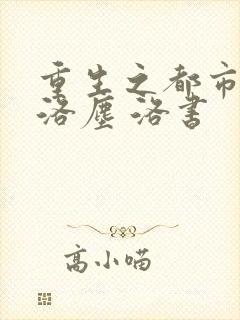 重生之都市
洛塵 洛書
高小喵